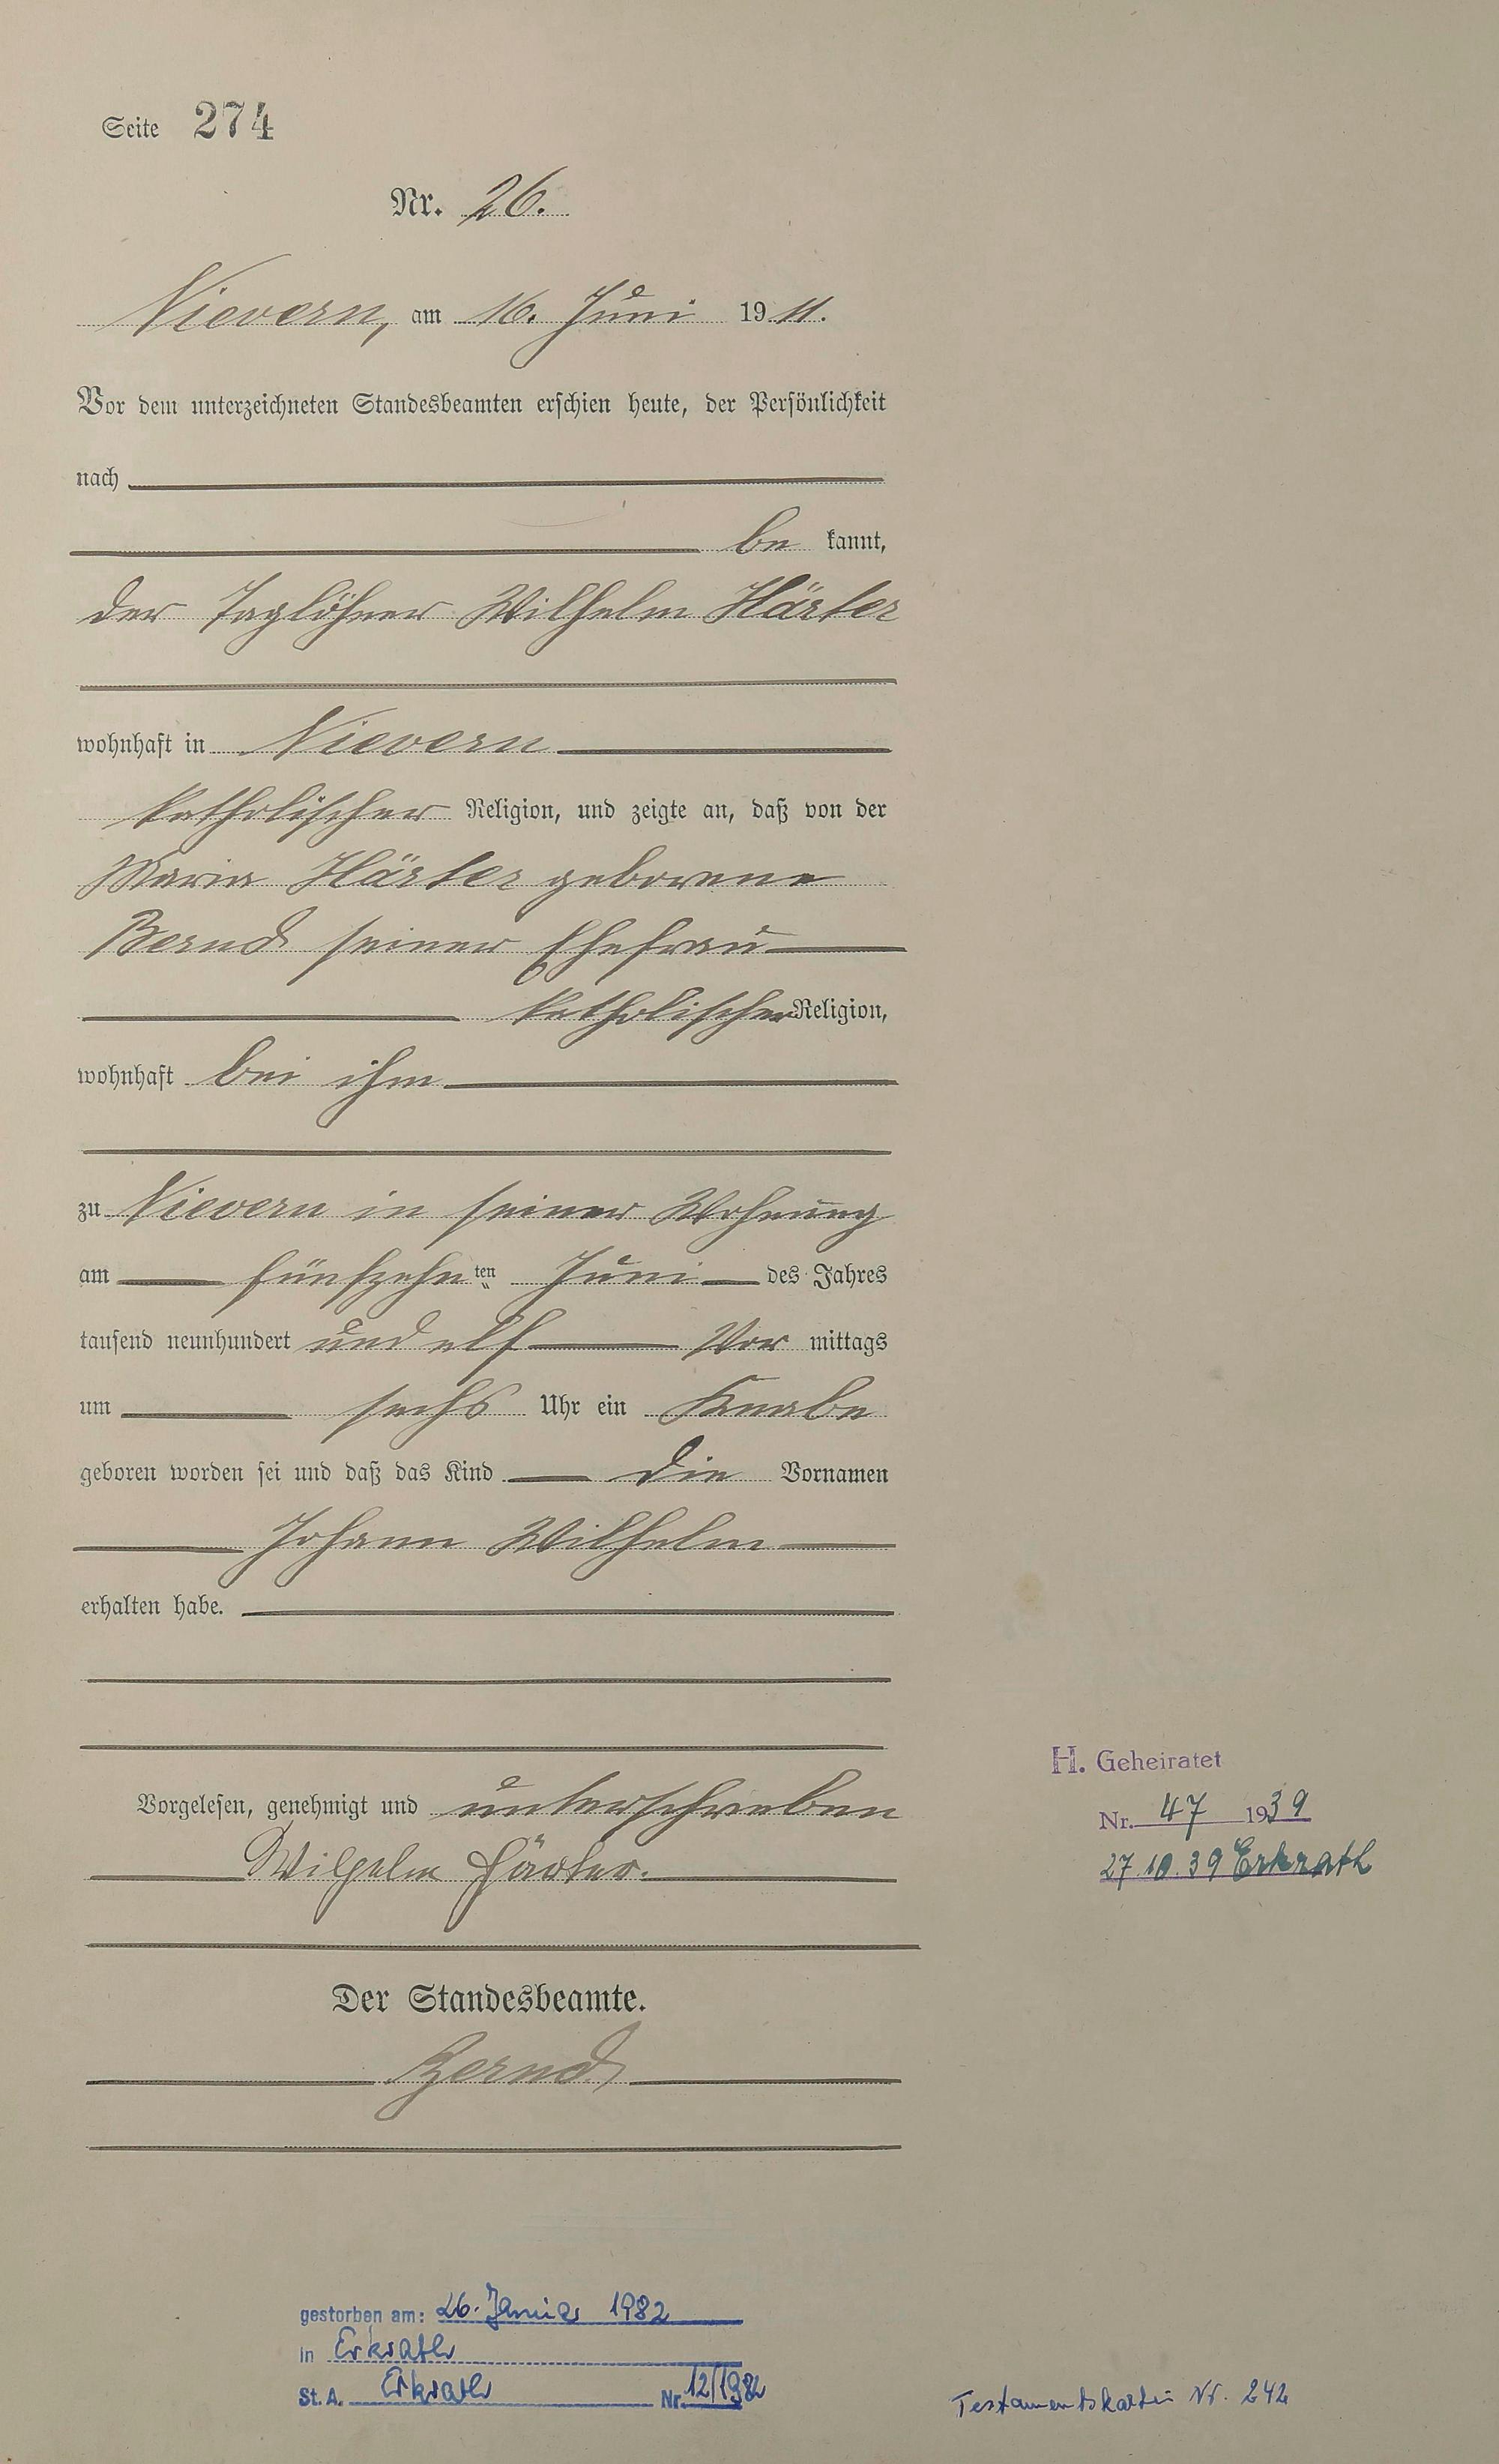 Seite 274
Nr. 26.
Nievern, am 16. Juni 1911.
Vor dem unterzeichneten Standesbeamten erschien heute, der Persönlichkeit
nach
be kannt,
der Taglöhner Wilhelm Härter
wohnhaft in Nievern
katholischer Religion, und zeigte an, daß von der
Maria Härter geborene
Bernd seiner Ehefrau
katholischer Religion,
wohnhaft bei ihm
zu Nievern in seiner Wohnung
am fünfzehnten Juni des Jahres
tausend neunhundert und elf Vor mittags
um sechs Uhr ein Knabe
geboren worden sei und daß das Kind die Vornamen
Johann Wilhelm
erhalten habe.
Vorgelesen, genehmigt und unterschrieben
Wilhelm Härter.
Der Standesbeamte.
Bernd
H. Geheiratet
Nr. 47 1939
27.10.39 Erkrath
gestorben am: 26. Januar 1982
in Erkrath
St. A. Erkrath Nr. 12/1982
Testamentskartei Nr. 242